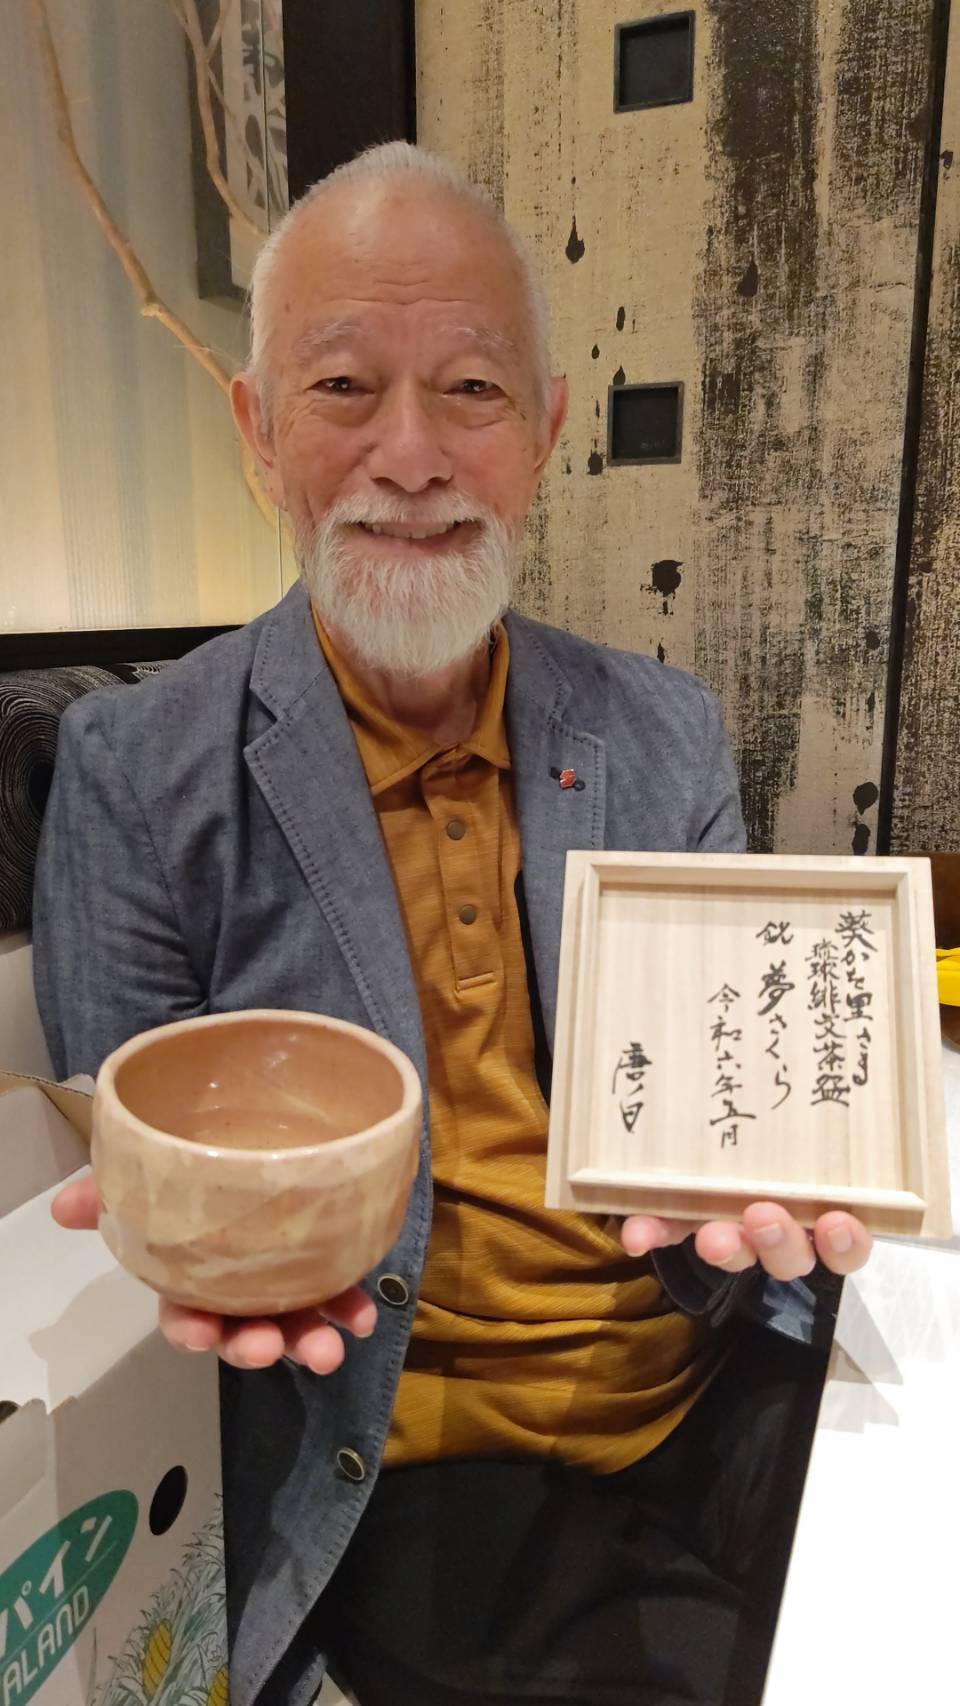 葵かを里さま
琉球緋文茶盌
銘 夢さくら
令和六年五月
唐ノ日
パイン
ALAND